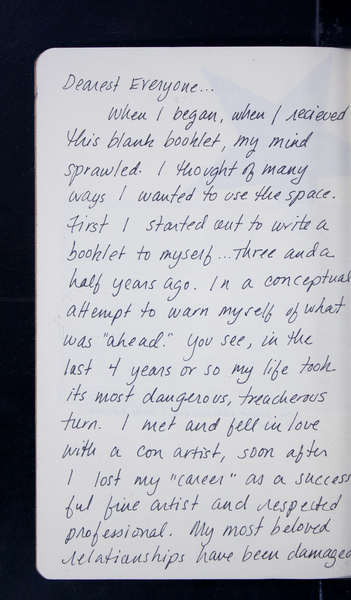 Dearest Everyone...
When I began, when I recieved
this blank booklet, my mind
sprawled. I thought of many
ways I wanted to use the space.
First I started out to write a
booklet to myself... Three and a
half years ago. In a conceptual
attempt to warn myself of what
was "ahead." You see, in the
last 4 years or so my life took
its most dangerous, treacherous
turn. I met and fell in love
with a con artist, soon after
I lost my "career" as a success
ful fine artist and respected
professional. My most beloved
relationships have been damaged